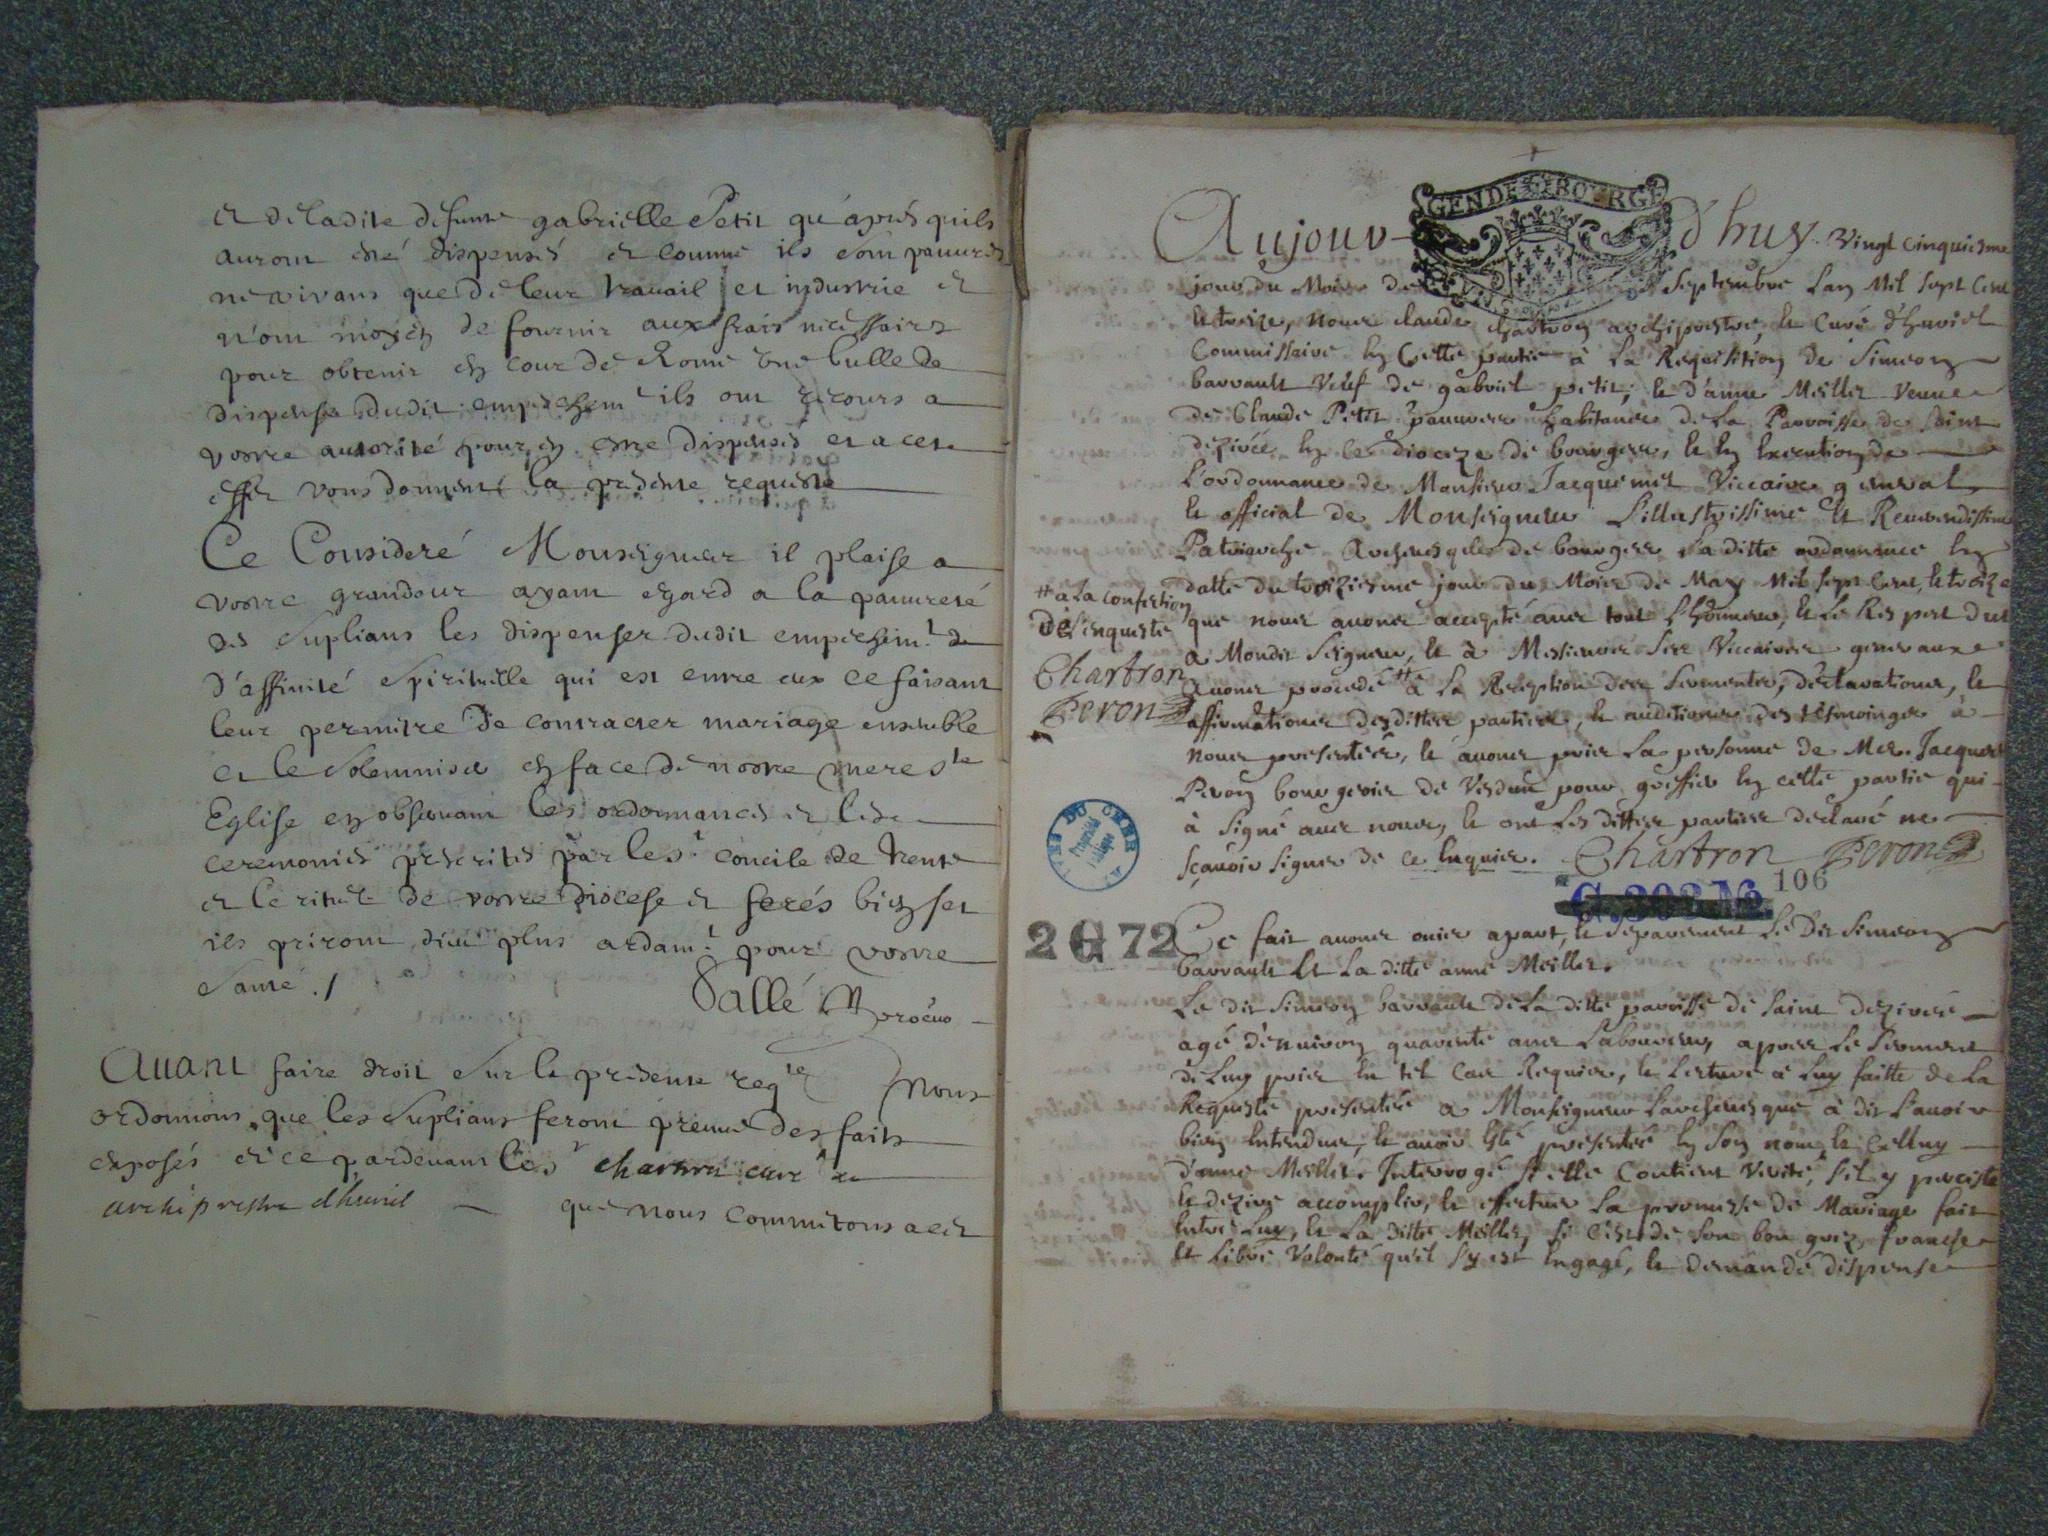 et de ladite defunte gabrielle Petit qu'aprés quils
auront esté dispensés et comme ils sont pauures
ne vivans que de leur trauail et industrie et
n'ont moyen de fournir aux frais nécessaires
pour obtenir en cour de Rome une bulle de
dispense dudit empeschemt ils ont recours a
vostre autorité pour en estre dispensés et a cet
effet vous donnent la presente requeste
Ce Consideré Monseigneur il plaise a
vostre grandeur ayant egard a la pauureté
des suplians les dispenser dudit empeschemt de
d'affinité spirituelle qui est entre eux ce faisant
leur permettre de contracter mariage ensemble
et le solemniser en face de nostre mere ste
Eglise en obseruant les ordonnances et les
ceremonies prescrites par le st concile de trente
et le rituel de vostre diocese et ferés bien et
ils priront dieu plus ardamt pour vostre
santé ./
Sallé
Auant faire droit sur la presente reqte Nous
ordonnons que les suplians feront preuue des faits
exposés et ce pardeuant le sr chartron curé et
archiprestre d'huriel que nous commettons a cet
GEN DE BOURGE
Aujourd'huy Vingt cinquiesme
jour du Mois de Septembre Lan Mil Sept Cent
et treize, nous claude chartron archiprestre et Curé d'huriel
Commissaire en Cette partie à La Requisition de Simeon
barrault veuf de gabriel petit, et d'anne Meillet veuue
de Claude Petit pauures habitans de La Parroisse de saint
deziré en ce dioceze de bourges, et en Execution de
L'ordonnance de Monsieur Jacquemet Viccaire general
et official de Monseigneur L'illustrissime et Reuerendissime
Patriarche Archeuesque de bourges La ditte ordonnance en
datte du treiziesme jour du Mois de May Mil sept Cent et treize
que nous auons accepté auec tout L'honneur et Le Respect deu
a Mondit Seigneur, et à Messieurs ses Viccaires generaux
auons procedé # à La Reception des serments, déclarations, et
affirmations desdittes parties, et auditions des tesmoings à
nous presentées, et auons pris La personne de Me Jacques
Peron bourgeois de pour greffier en cette partie qui
à signé auec nous, et ont Les dittes parties declaré ne
sçauoir signer de ce enquis. Chartron Peron
# à La confection
de L'enqueste
Chartron
Peron
ARCHIVES DU CHER
Propriété
Publique
G.203 No
106
2 G 72
Ce fait auons ouis apart, et separement Le Dit Simeon
barrault et La ditte anne Meillet.
Le dit Simeon barrault de La ditte paroisse de saint deziré
agé d'enuiron quarente ans Laboureur, apres Le serment
de Luy pris en tel Cas Requis, et Lecture à Luy faitte de La
Requeste presentée a Monseigneur Larcheuesque à dit L'auoir
bien entendue, et auoir esté presentée en son nom et Celluy
d'anne Meillet. Interrogé si elle Contient Verité, s'il y perciste
et dezire accomplir, et effectuer La promesse de Mariage fait
entre Luy, et La ditte Meillet, si c'est de son bon gré, franche
et Libre Volonté qu'il s'y est engagé, et demandé dispense